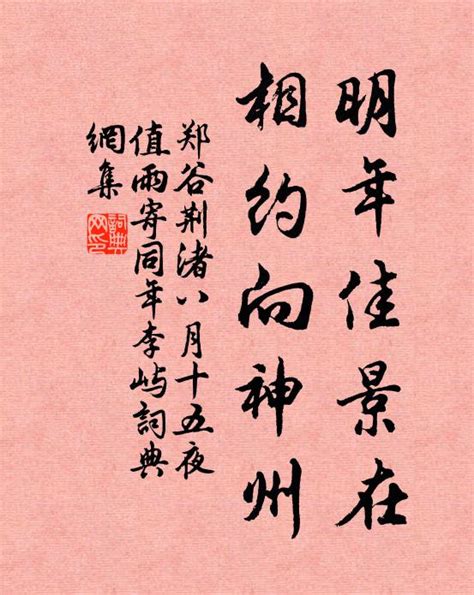 明年佳景在
相约向神州
郑谷荆渚八月十五夜
值雨寄同年李屿詞典
網集
詞典网印